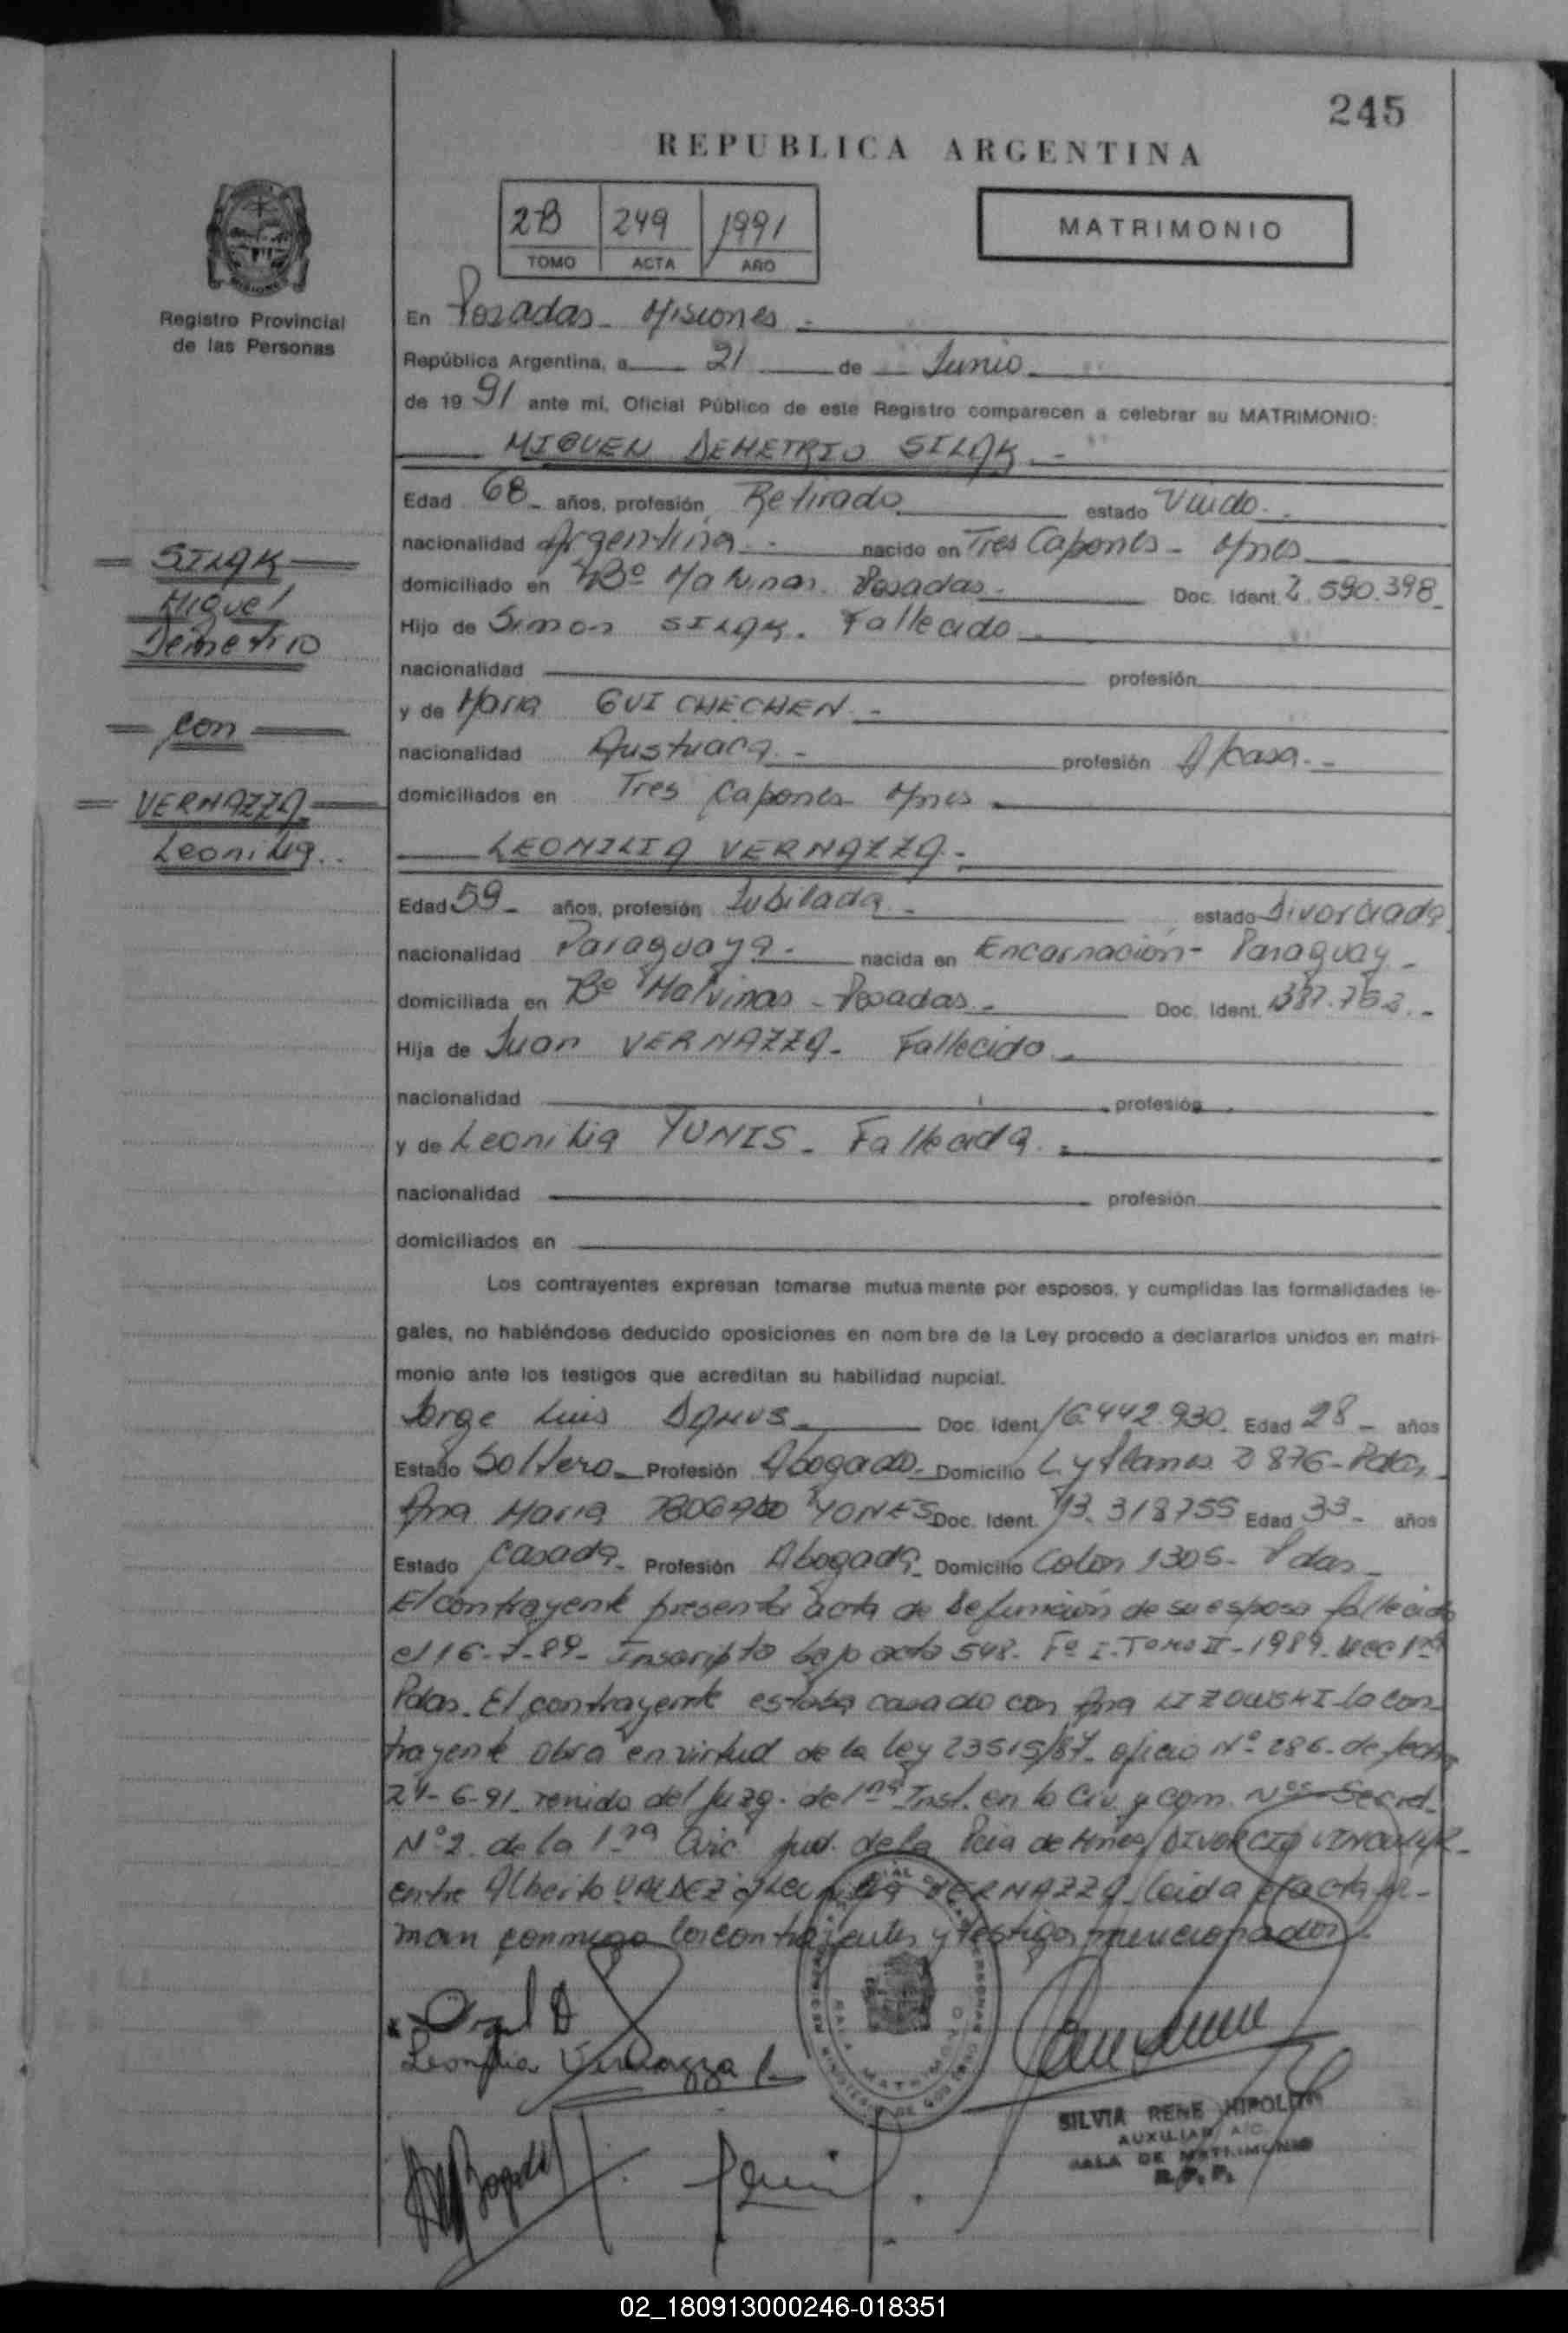 245
REPUBLICA ARGENTINA
2B 249 1991
TOMO ACTA AÑO
MATRIMONIO
Registro Provincial
de las Personas
En Posadas - Misiones -
República Argentina, a 21 de Junio
de 1991 ante mí, Oficial Público de este Registro comparecen a celebrar su MATRIMONIO:
MIGUEL DEMETRIO SILAK -
Edad 68 - años, profesión Retirado estado Viudo -
nacionalidad Argentina - nacido en Tres Capones - Mnes
domiciliado en Bº Malvinas Posadas - Doc. Ident. 2.590.398
Hijo de Simon SILAK. Fallecido
nacionalidad profesión
y de Maria GUICHECHEN -
nacionalidad Austriaca - profesión A/casa -
domiciliados en Tres Capones Mnes
= SILAK =
Miguel
Demetrio
= con =
= VERNAZZA =
Leonilia..
LEONILIA VERNAZZA -
Edad 59 - años, profesión Jubilada - estado Divorciada
nacionalidad Paraguaya - nacida en Encarnación - Paraguay -
domiciliada en Bº Malvinas - Posadas - Doc. Ident.
Hija de Juan VERNAZZA - Fallecido -
nacionalidad profesión
y de Leonilia YUNIS - Fallecida -
nacionalidad profesión
domiciliados en
Los contrayentes expresan tomarse mutuamente por esposos, y cumplidas las formalidades le-
gales, no habiéndose deducido oposiciones en nombre de la Ley procedo a declararlos unidos en matri-
monio ante los testigos que acreditan su habilidad nupcial.
Jorge Luis Doc. Ident. 16.442.930. Edad 28 - años
Estado Soltero - Profesión Abogado - Domicilio L. y Planes 2876 - Pdas
Ana Maria BOGADO YONES Doc. Ident. 13.318755 Edad 33 - años
Estado Casada - Profesión Abogada - Domicilio Colon 1305 - Pdas -
El contrayente presenta acta de defunción de su esposa fallecida
el 16-7-89 - Inscripto bajo acta 548 - Fº I - Tomo II - 1989 - 1ra
Pdas. El contrayente estaba casado con Ana LIZOWSKI - la con-
trayente obra en virtud de la ley 23515/87 - oficio Nº 286 - de fecha
21-6-91 - venido del Juzg. de 1ra Inst. en lo Civ. y Com. Secret.
Nº 2 de la 1ra Circ. Jud. de la Pcia de Mnes / DIVORCIO VINCULAR -
entre Alberto VALDEZ y Leonilia VERNAZZA - leida el acta fir-
man conmigo los contrayentes y testigos mencionados -
Leonilia Vernazza
SALA MATRIMONIO
SILVIA RENE HIPOLITO
AUXILIAR A/C
SALA DE MATRIMONIO
R. P. P.
02_180913000246-018351